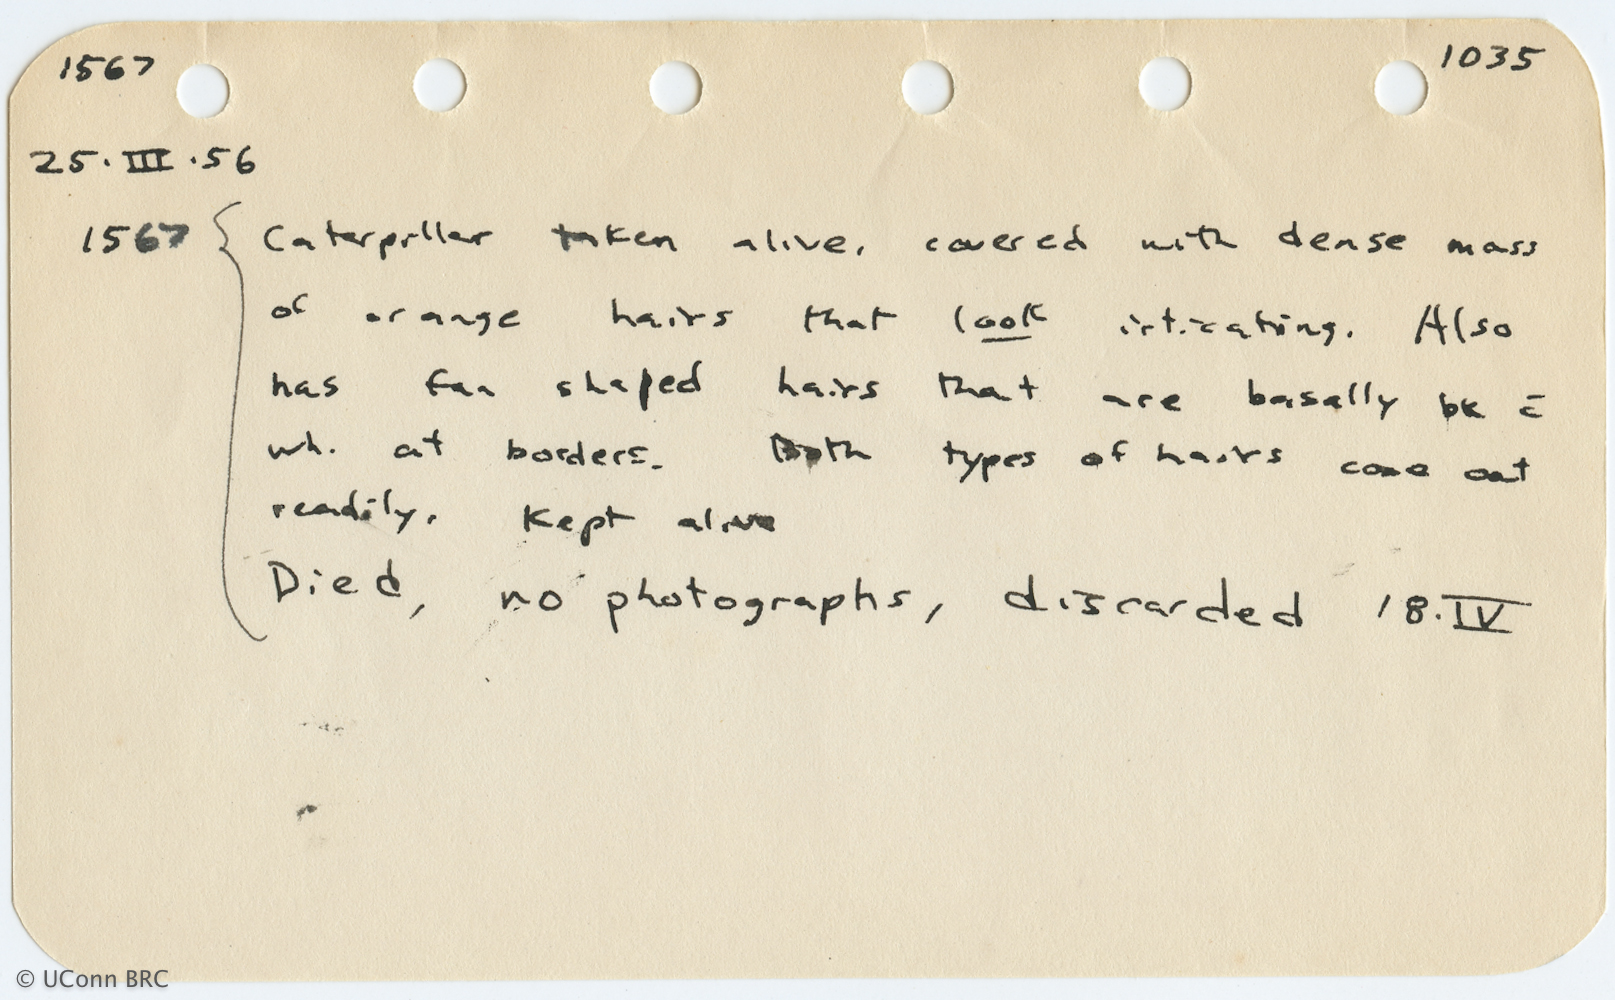 1567 1035
25.III.56
1567 { Caterpillar taken alive, covered with dense mass
of orange hairs that look irticating. Also
has fan shaped hairs that are basally bk c̄
wh. at borders. Both types of hairs come out
readily. Kept alive
Died, no photographs, discarded 18.IV
© UConn BRC